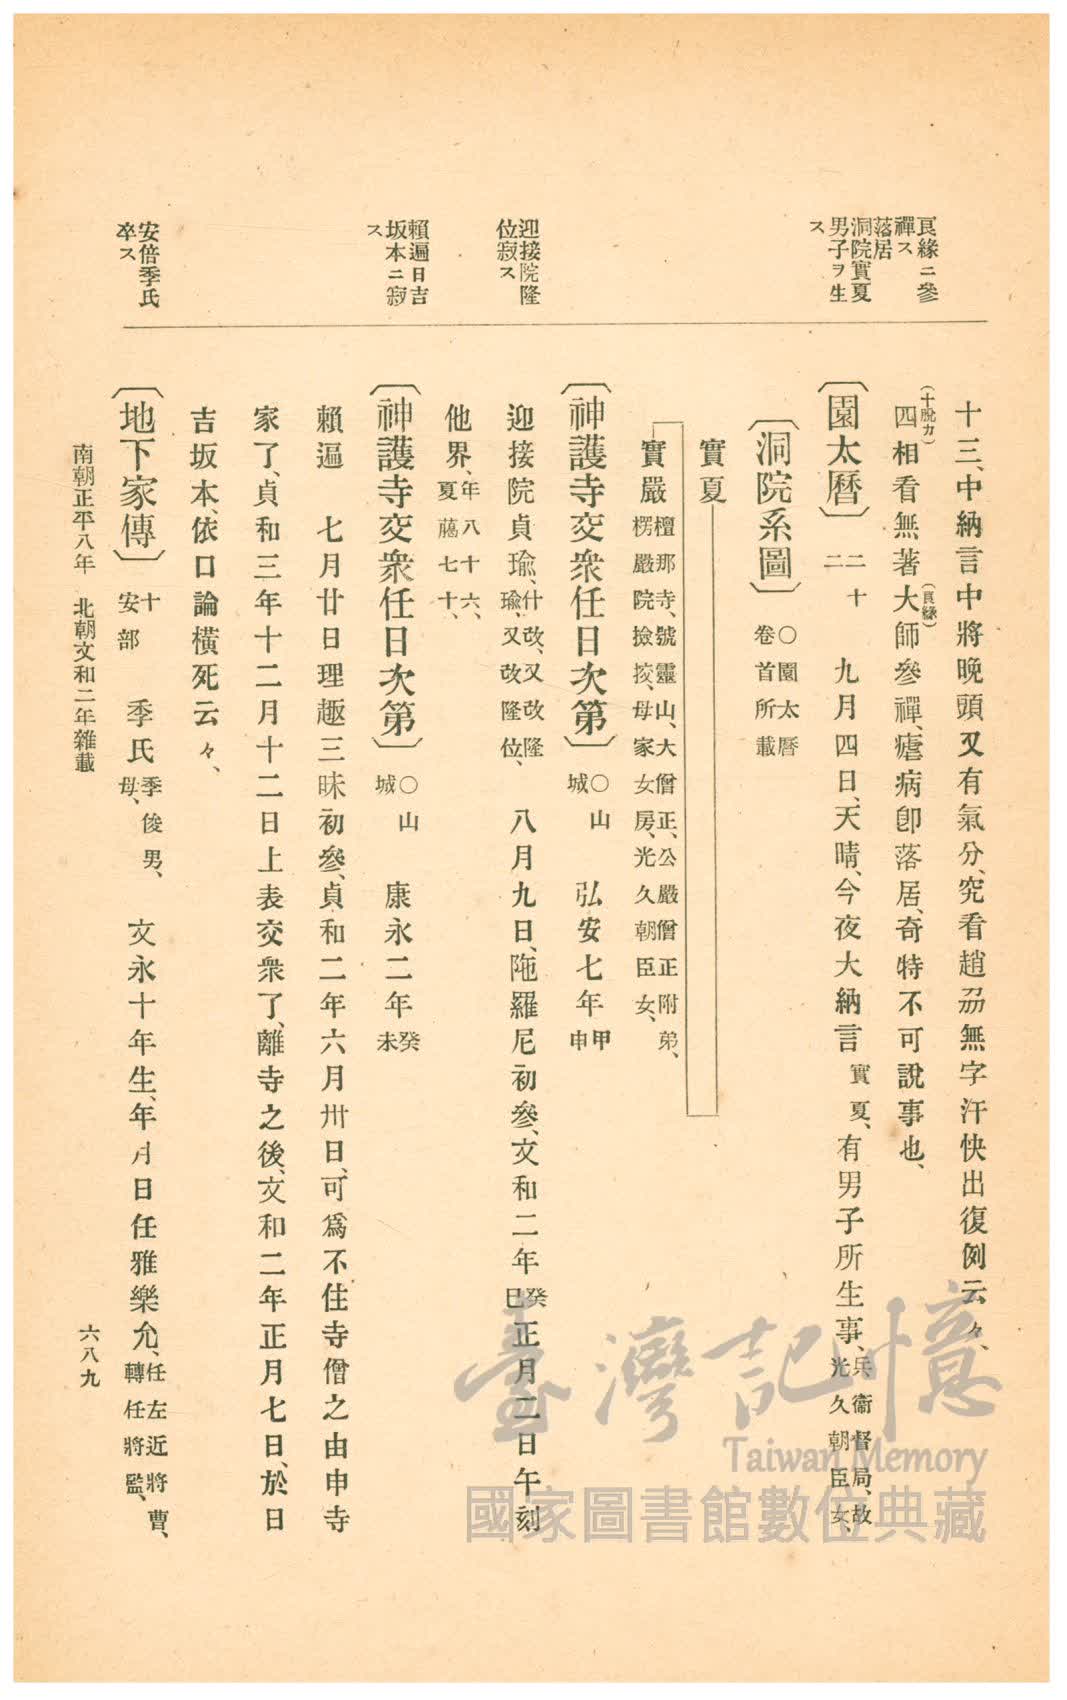 良緣ニ參
禪ス
落居
洞院實夏
男子ヲ生
ス
迎接院隆
位寂ス
賴遍日吉
坂本ニ寂
ス
安倍季氏
卒ス
十三、中納言中將晚頭又有氣分、究看趙刕無字汗快出復例云々、
(十脫カ)
四相看無著大師參禪、瘧病卽落居、奇特不可說事也、
(良緣)
〔園太曆〕二十二 九月四日、天晴、今夜大納言實夏、有男子所生事、兵衞督局、故光久朝臣女、
〔洞院系圖〕○園太曆卷首所載
實夏
實嚴 檀那寺、號靈山、大僧正、公嚴僧正附弟、楞嚴院撿挍、母家女房、光久朝臣女、
〔神護寺交衆任日次第〕○山城 弘安七年甲申
迎接院貞瑜、什改、又改隆瑜、又改隆位、 八月九日、陁羅尼初參、文和二年癸巳正月二日午刻
他界、年八十六、夏﨟七十、
〔神護寺交衆任日次第〕○山城 康永二年癸未
賴遍 七月廿日理趣三昧初參、貞和二年六月卅日、可爲不住寺僧之由申寺
家了、貞和三年十二月十二日上表交衆了、離寺之後、文和二年正月七日、於日
吉坂本、依口論橫死云々、
〔地下家傳〕十安部 季氏季俊男、母、 文永十年生、年月日任雅樂允、任左近將曹、轉任將監、
南朝正平八年 北朝文和二年雜載
六八九
臺灣記憶
Taiwan Memory
國家圖書館數位典藏